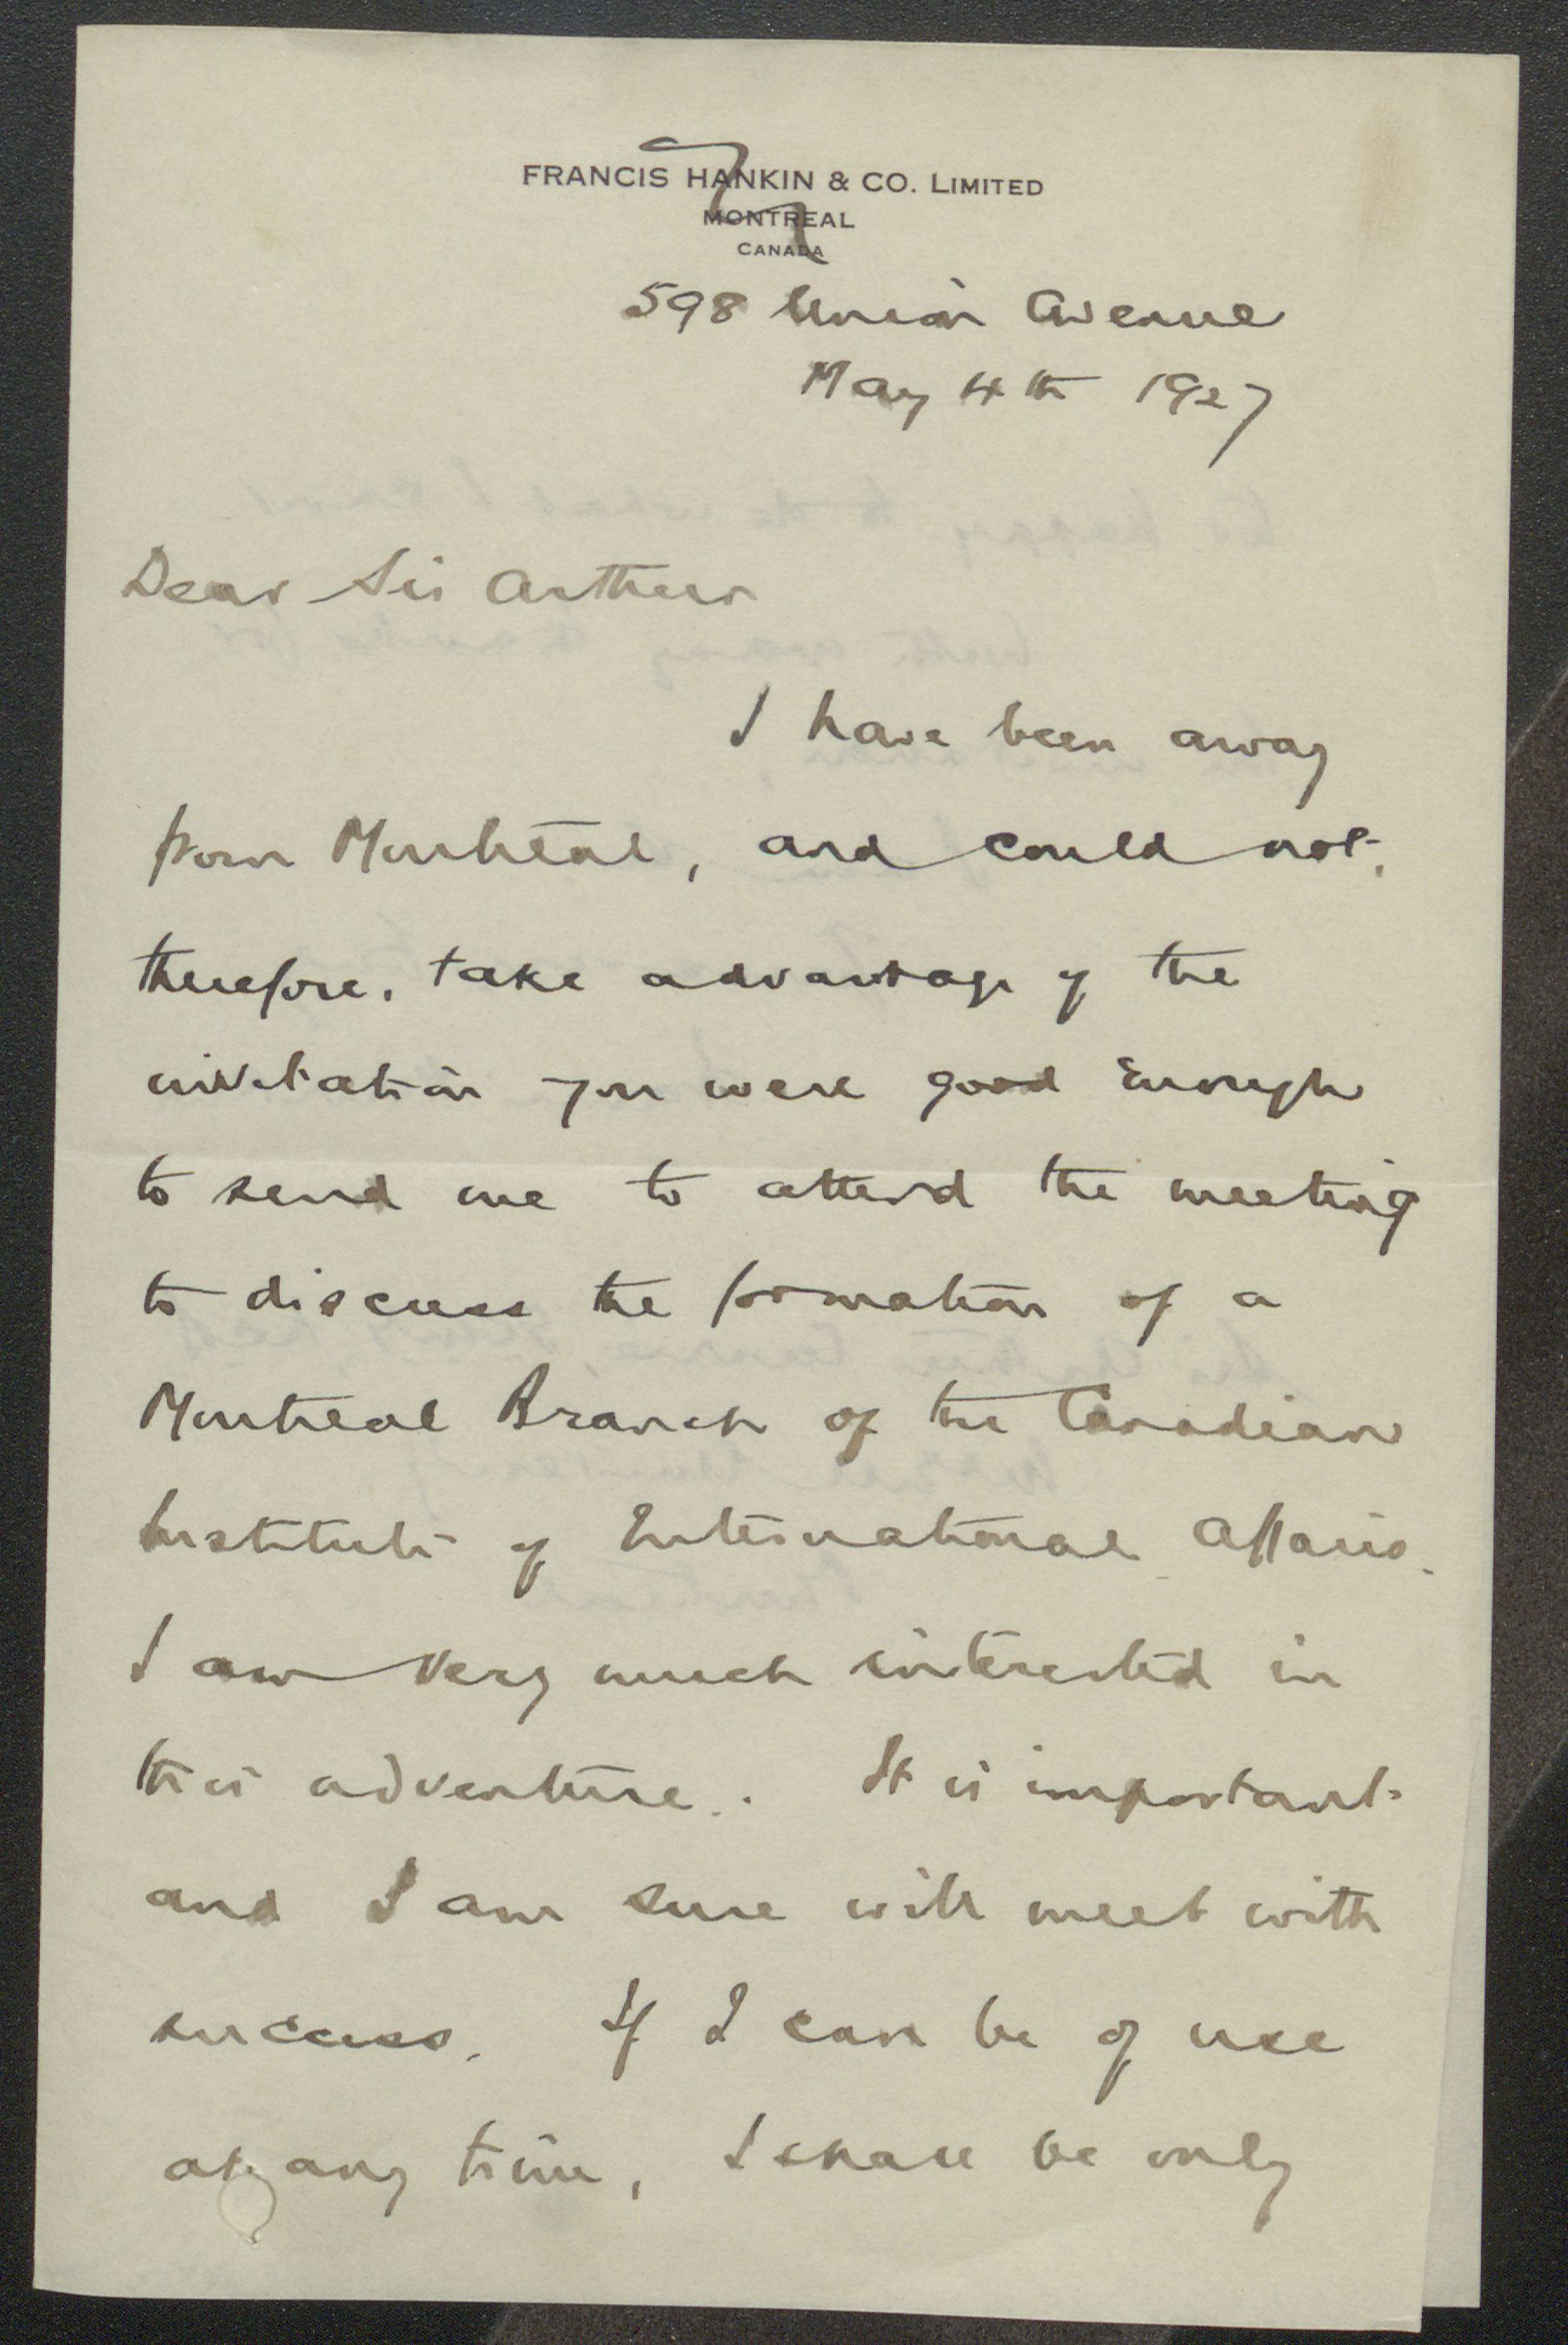 FRANCIS HANKIN & CO. LIMITED
MONTREAL
CANADA
598 Union Avenue
May 4th 1927
Dear Sir Arthur
I have been away
from Montreal, and could not,
therefore, take advantage of the
invitation you were good enough
to send me to attend the meeting
to discuss the formation of a
Montreal Branch of the Canadian
Institute of International Affairs.
I am very much interested in
this adventure. It is important
and I am sure will meet with
success. If I can be of use
at any time, I shall be only